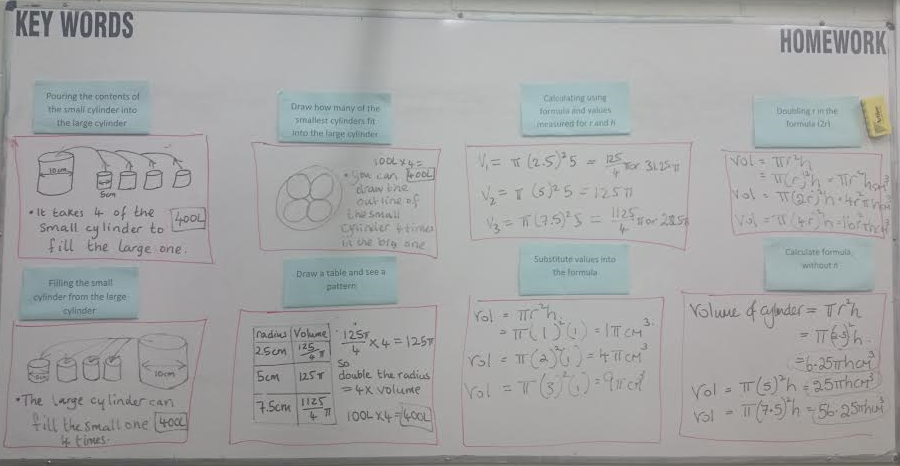 KEY WORDS
HOMEWORK
Pouring the contents of
the small cylinder into
the large cylinder
10cm
5cm
• It takes 4 of the
small cylinder to
fill the large one.
400L
Draw how many of the
smallest cylinders fit
into the large cylinder
100L x 4 =
• You can 400L
draw the
outline of
the small
cylinder 4 times
in the big one
Calculating using
formula and values
measured for r and h
V₁ = π (2.5)² 5 = 125/4 π or 31.25π
V₂ = π (5)² 5 = 125π
V₃ = π (7.5)² 5 = 1125/4 π or
Doubling r in the
formula (2r)
Vol = πr²h
= π(r)²h = πr²h cm³
Vol = π(2r)²h = 4r²πh cm³
Vol = π(4r)²h =
Filling the small
cylinder from the large
cylinder
10cm
• The large cylinder can
fill the small one 400L
4 times.
Draw a table and see a
pattern
radius Volume
2.5cm 125/4 π
5cm 125π
7.5cm 1125/4 π
125π/4 x 4 = 125π
so
double the radius
= 4x volume
100L x 4 = 400L
Substitute values into
the formula
Vol = πr²h
= π(1)²(1) = 1πcm³
Vol = π(2)²(1) = 4πcm³
Vol = π(3)²(1) = 9πcm³
Calculate formula
without h
Volume of cylinder = πr²h
= π(2.5)²h
= 6.25πhcm³
Vol = π(5)²h = 25πhcm³
Vol = π(7.5)²h = 56.25πhcm³